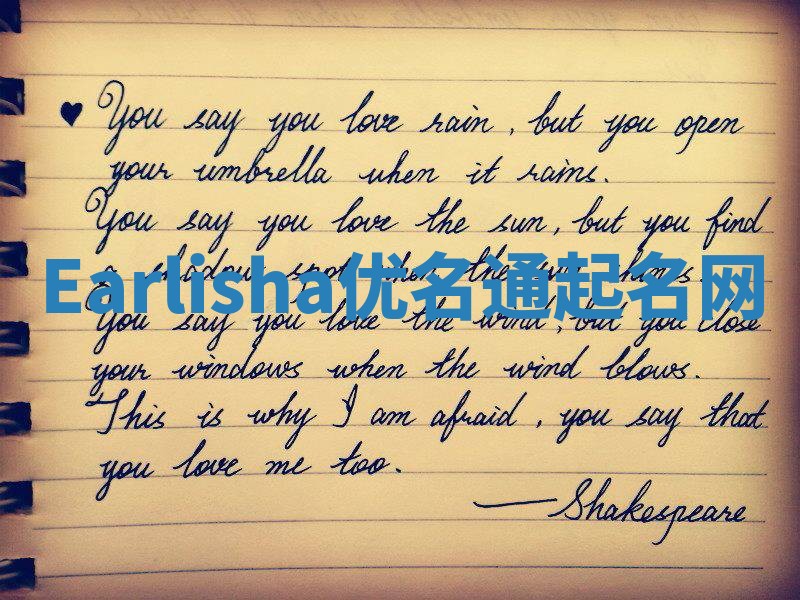 ♥ You say you love rain, but you open
your umbrella when it rains.
You say you love the sun, but you find
a shadow spot when the sun shines.
Earlisha优名通起名网
You say you love the wind, but you close
your windows when the wind blows.
This is why I am afraid, you say that
you love me too.
— Shakespeare